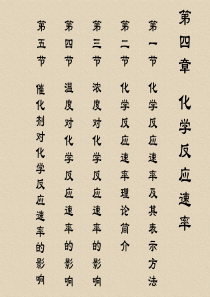 第四章 化学反应速率
第一节 化学反应速率及其表示方法
第二节 化学反应速率理论简介
第三节 浓度对化学反应速率的影响
第四节 温度对化学反应速率的影响
第五节 催化剂对化学反应速率的影响